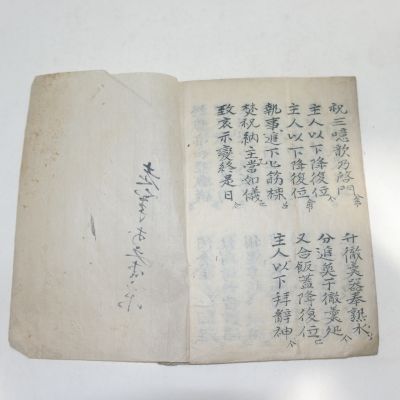 祝三噫歆乃啓門
主人以下降復位
主人以下降復位
執事進下匕筯楪
焚祝納主當如儀
致哀示變終是日
升徹羹器奉熟水
分進莫于徹羹処
又合飯蓋降復位
主人以下拜辭神